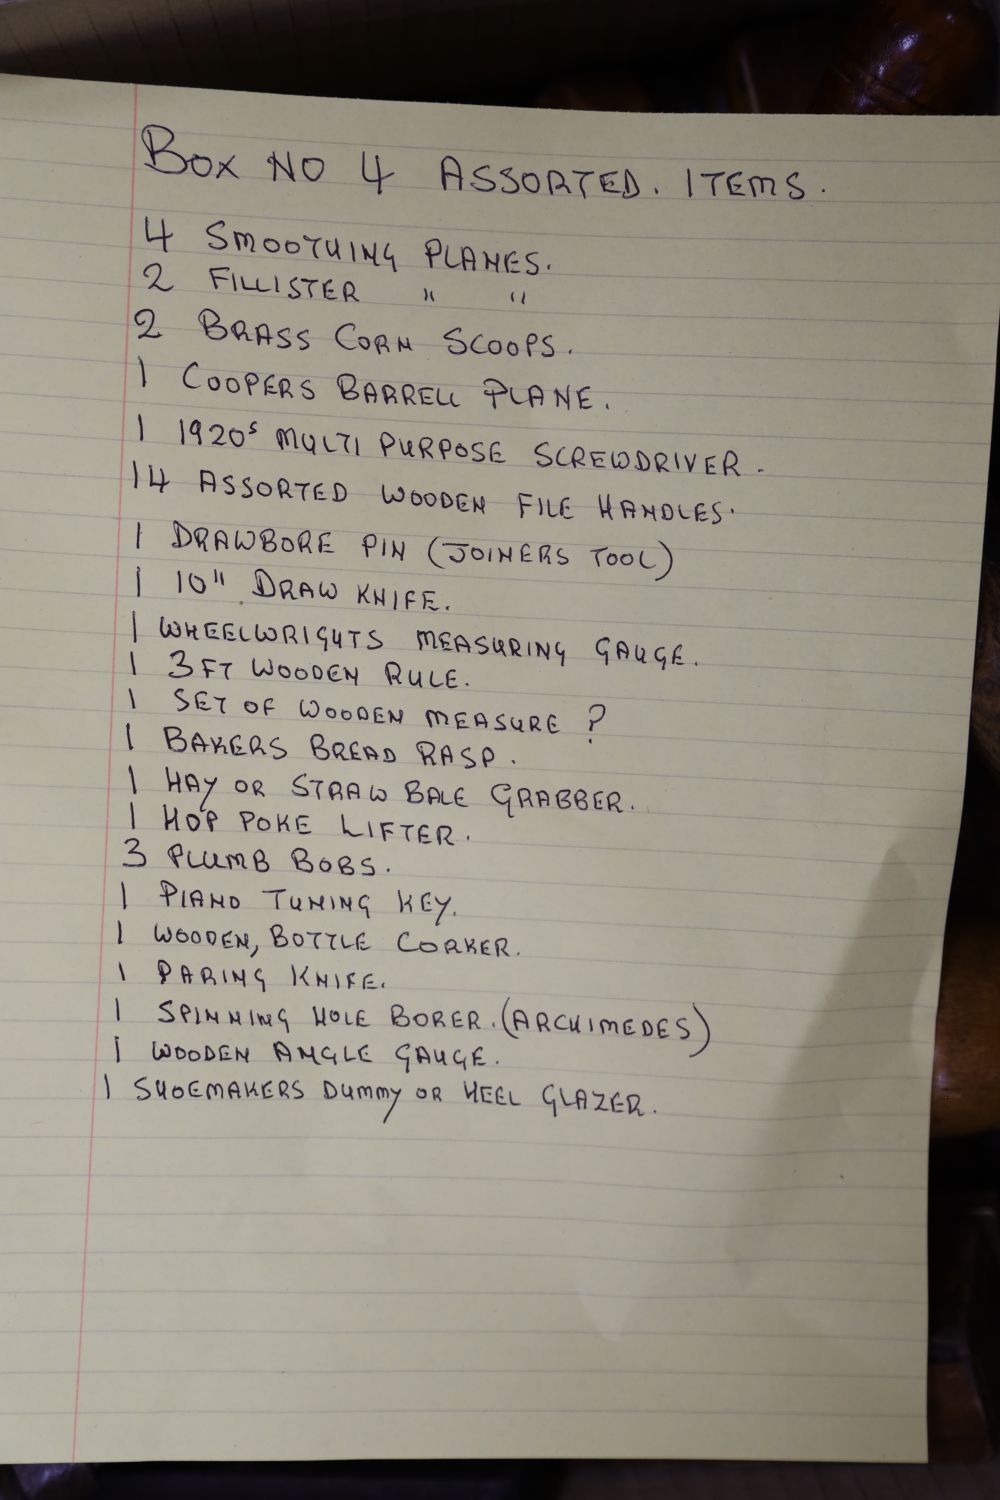 BOX NO 4 ASSORTED. ITEMS.
4 SMOOTHING PLANES.
2 FILLISTER " "
2 BRASS CORN SCOOPS.
1 COOPERS BARRELL PLANE.
1 1920s MULTI PURPOSE SCREWDRIVER.
14 ASSORTED WOODEN FILE HANDLES.
1 DRAWBORE PIN (JOINERS TOOL)
1 10" DRAW KNIFE.
1 WHEELWRIGHTS MEASURING GAUGE.
1 3FT WOODEN RULE.
1 SET OF WOODEN MEASURE ?
1 BAKERS BREAD RASP.
1 HAY OR STRAW BALE GRABBER.
1 HOP POKE LIFTER.
3 PLUMB BOBS.
1 PIANO TUNING KEY.
1 WOODEN, BOTTLE CORKER.
1 PARING KNIFE.
1 SPINNING HOLE BORER. (ARCHIMEDES)
1 WOODEN ANGLE GAUGE.
1 SHOEMAKERS DUMMY OR HEEL GLAZER.